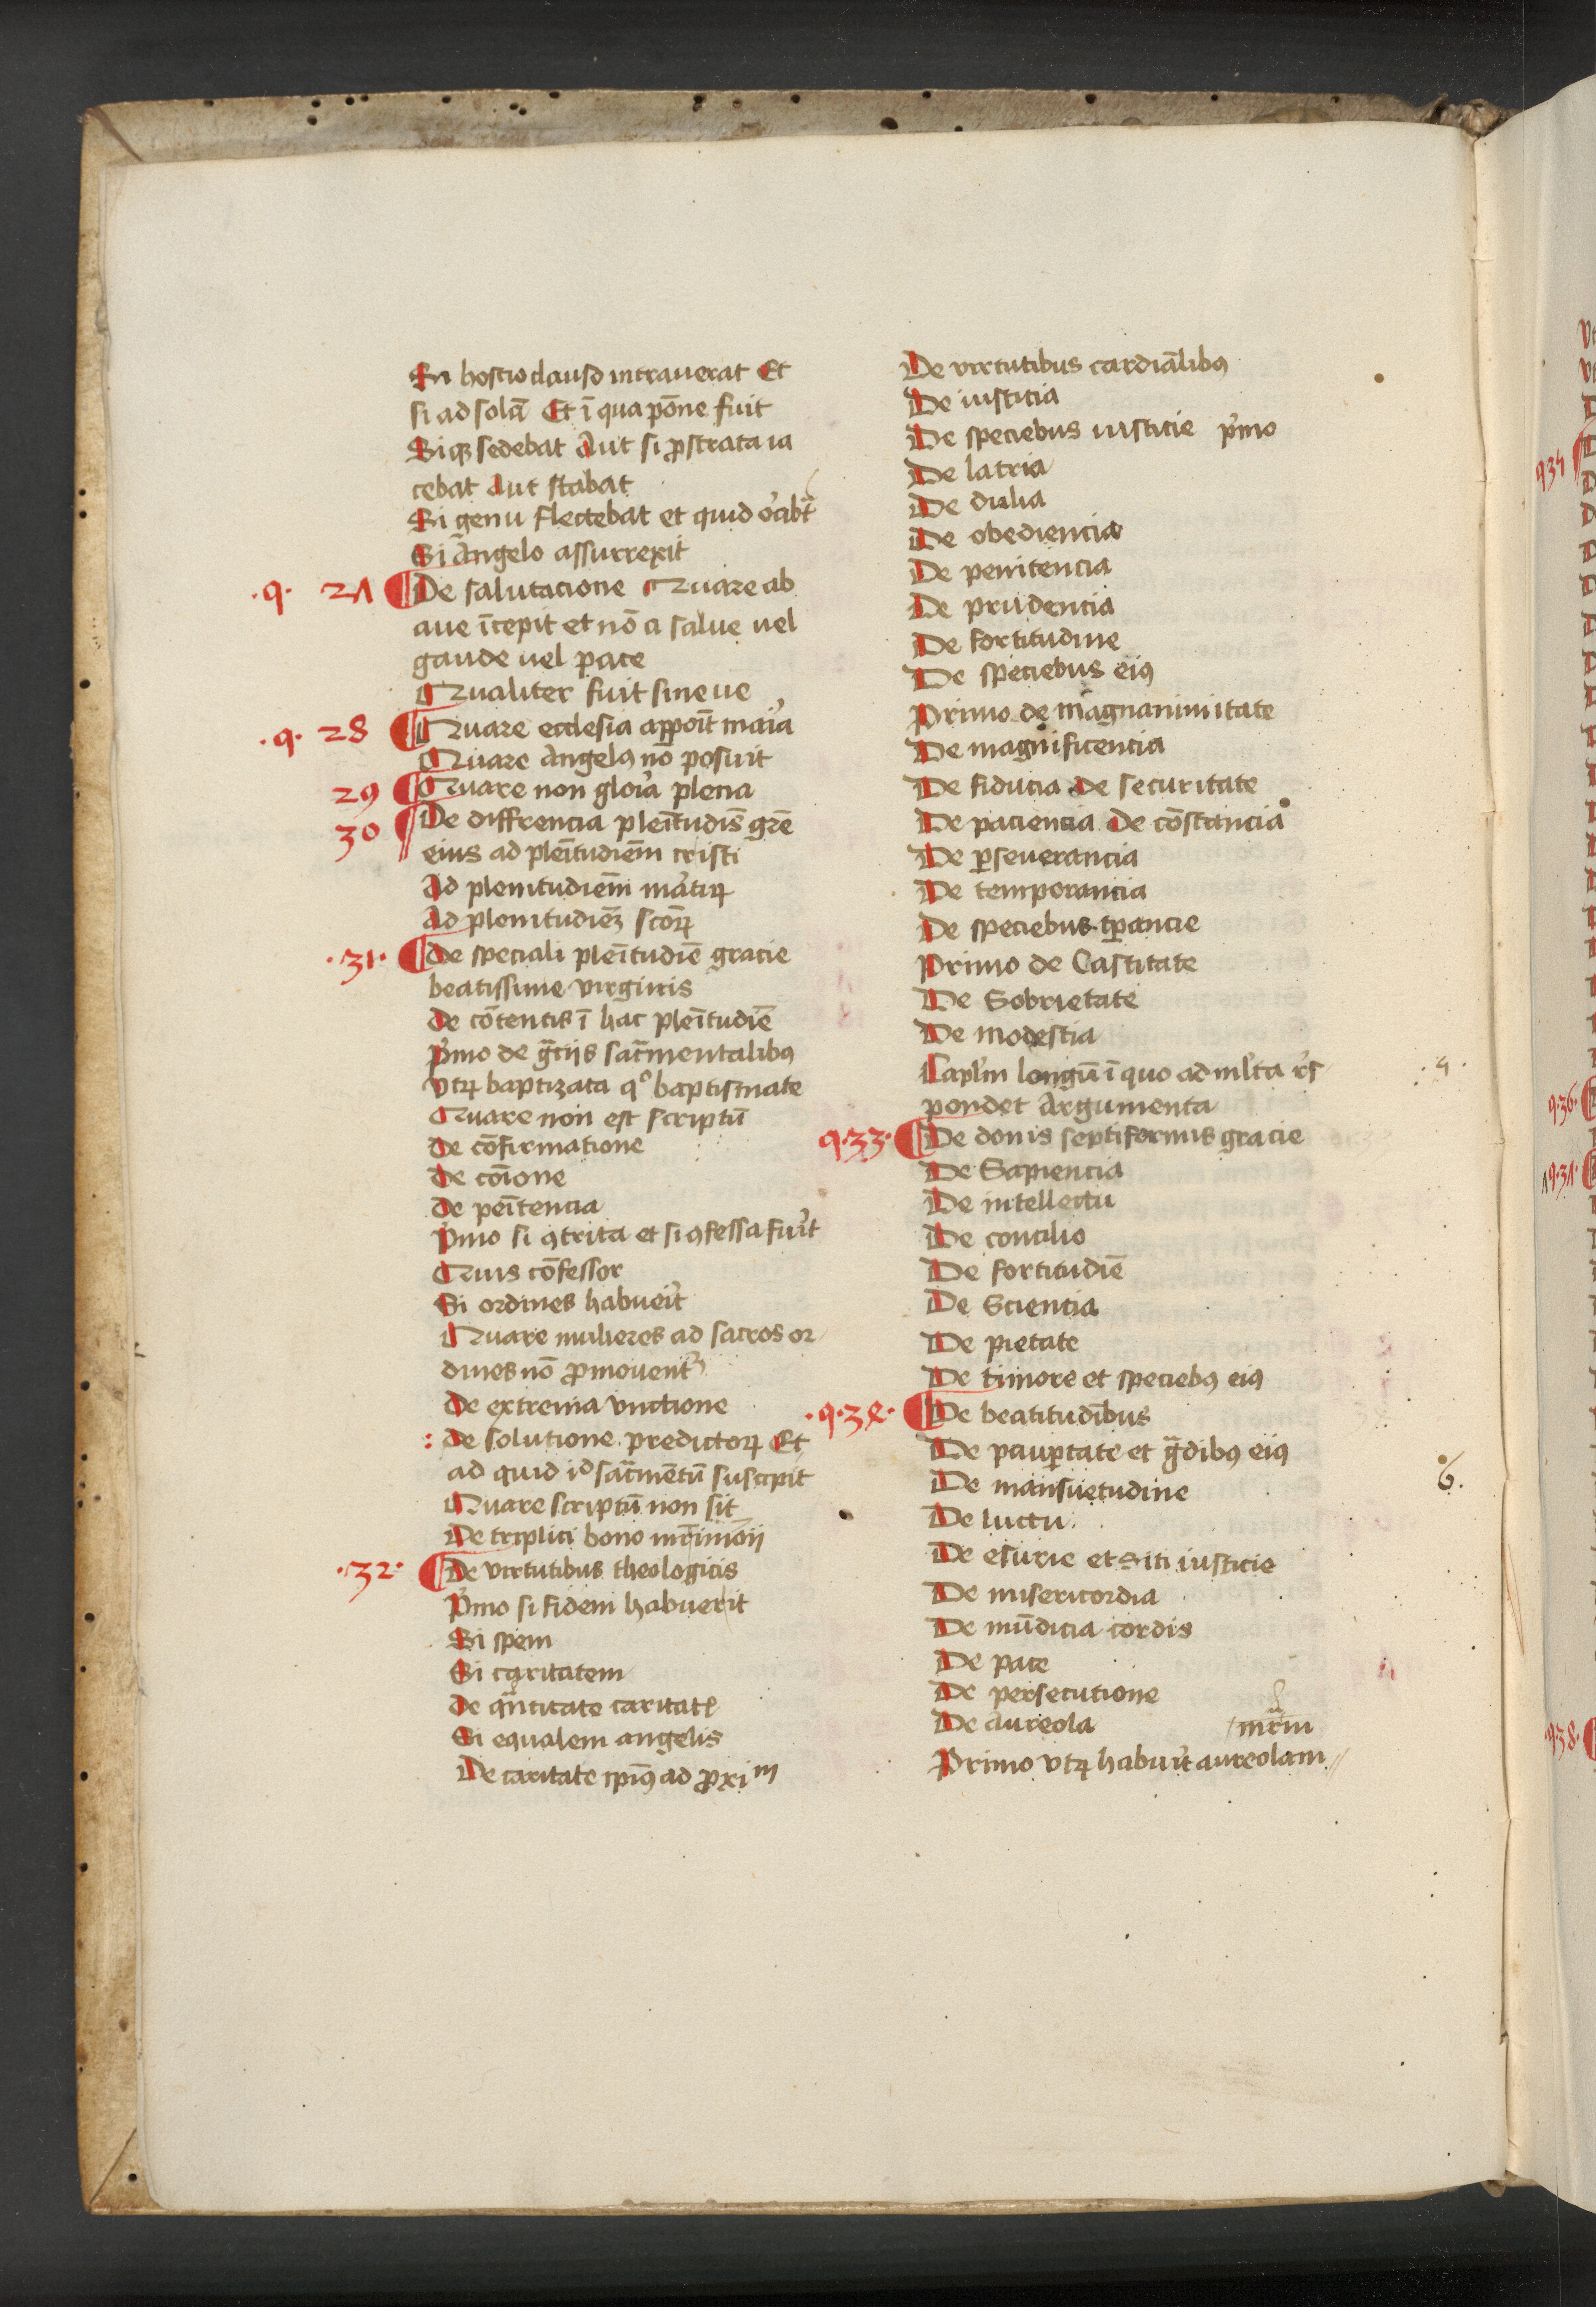 En hostio clauso intrauerat Et
si ad solā Et ī qua pōne fuit
Siqꝫ sedebat Aut si ꝓstrata ia
cebat Aut stabat
Si genu flectebat et quid
Si Angelo assurrexit
.q. 2Λ De salutacione Quare ab
aue īcepit et nō a salue uel
gaude uel pace
Qualiter fuit sine ue
.q. 28 Quare ecclesia
Quare Angelꝯ nō posuit
29 Quare non gloīa plena
30 De diffrencia pleītudis̄ gr̄e
eius ad pleītudiem̄ cristi
Ad plenitudiem̄ mātꝝ
Ad plenitudieꝫ scōꝝ
.31. de speciali pleītudiē gracie
beatissime virginis
de cōtentis ī hac pleītudiē
pͥmo de gr̄ciis sac̄mentalibꝯ
vtꝝ baptizata qͦ baptismate
Quare non est scriptū
de cōfirmatione
de cōione
de peītencia
pͥmo si ꝯtrita et si ꝯfessa fuīt
Quis cōfessor
Si ordines habueīt
Quare mulieres ad sacros or
dines nō ꝓmouent᷑
de extrema vnctione
: de solutione predictoꝝ Et
ad quid id sac̄mētū suscipit
Quare scriptū non sit
De triplici bono mr̄imōii
.32. de virtutibus theologicis
pͥmo si fidem habuerit
Si spem
Si caritatem
de qn̄titate caritatꝭ
Si equalem angelis
De caritate ipiꝯ ad ꝓxiᵐ
De virtutibus cardiālibꝯ
De iusticia
De speciebus iusticie pͥmo
De latria
De dulia
De obediencia
De penitencia
De prudencia
De fortitudine
De speciebus eiꝯ
Primo de magnanimitate
De magnificencia
De fiducia de securitate
De paciencia de cōstancia
De ꝑseuerancia
De temporancia
De speciebus tꝑancie
Primo de Castitate
De Sobrietate
De modestia
Capl̄m longū ī quo ad ml̄ta r̄s
pondet Argumenta
q.33. De donis septiformis gracie
De Sapiencia
De intellectu
De concilio
De fortitudiē
De Sciencia
De pietate
De timore et speciebꝯ eiꝯ
.q.3ꝭ. De beatitudībus
De pauꝑtate et gͣdibꝯ eiꝯ
De mansuetudine
De luctu
De esurie et siti iusticie
De misericordia
De mūdicia cordis
De pace
De persecutione
De aureola mr̄m
Primo vtꝝ habuīt aureolam
.4.
6.
q34
q.36.
q.3Λ.
q38.